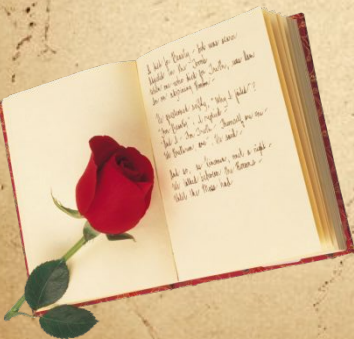 I died for Beauty - but was scarce
Adjusted in the Tomb
When One who died for Truth, was lain
In an adjoining Room -
He questioned softly "Why I failed"?
"For Beauty", I replied -
"And I - for Truth - Themself are One -
We Brethren, are", He said -
And so, as Kinsmen, met a Night -
We talked between the Rooms -
Until the Moss had